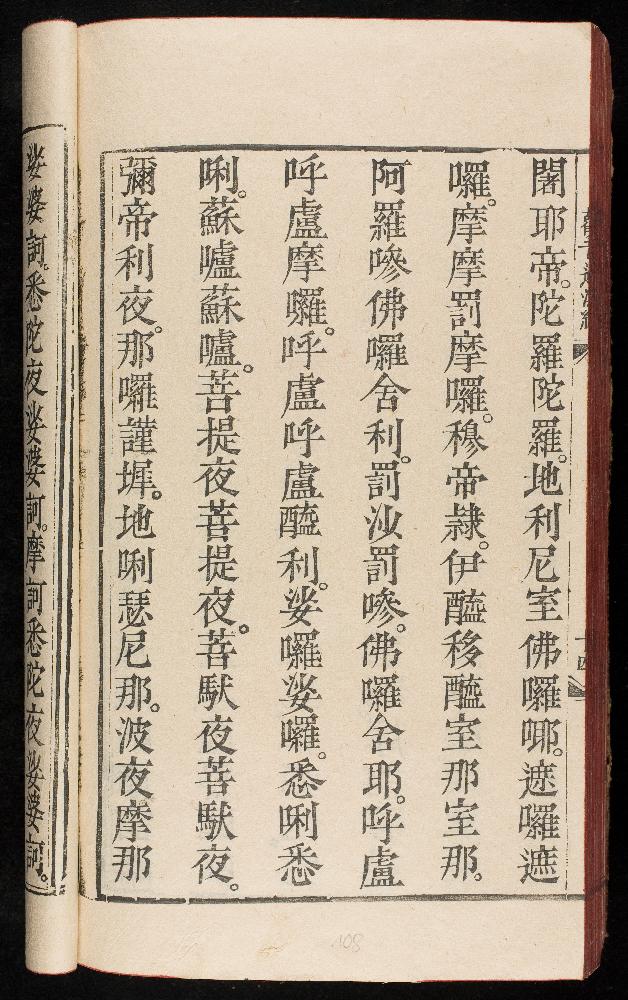 闍耶帝。陀羅陀羅。地利尼室佛囉㖿。遮囉遮
囉。摩摩罰摩囉。穆帝隸。伊醯移醯室那室那。
阿羅嘇佛囉舍利。罰沙罰嘇。佛囉舍耶。呼盧
呼盧摩囉。呼盧呼盧醯利。娑囉娑囉。悉唎悉
唎。蘇嚧蘇嚧。菩提夜菩提夜。菩馱夜菩馱夜。
彌帝利夜。那囉謹墀。地唎瑟尼那。波夜摩那
娑婆訶。悉陀夜娑婆訶。摩訶悉陀夜娑婆訶。